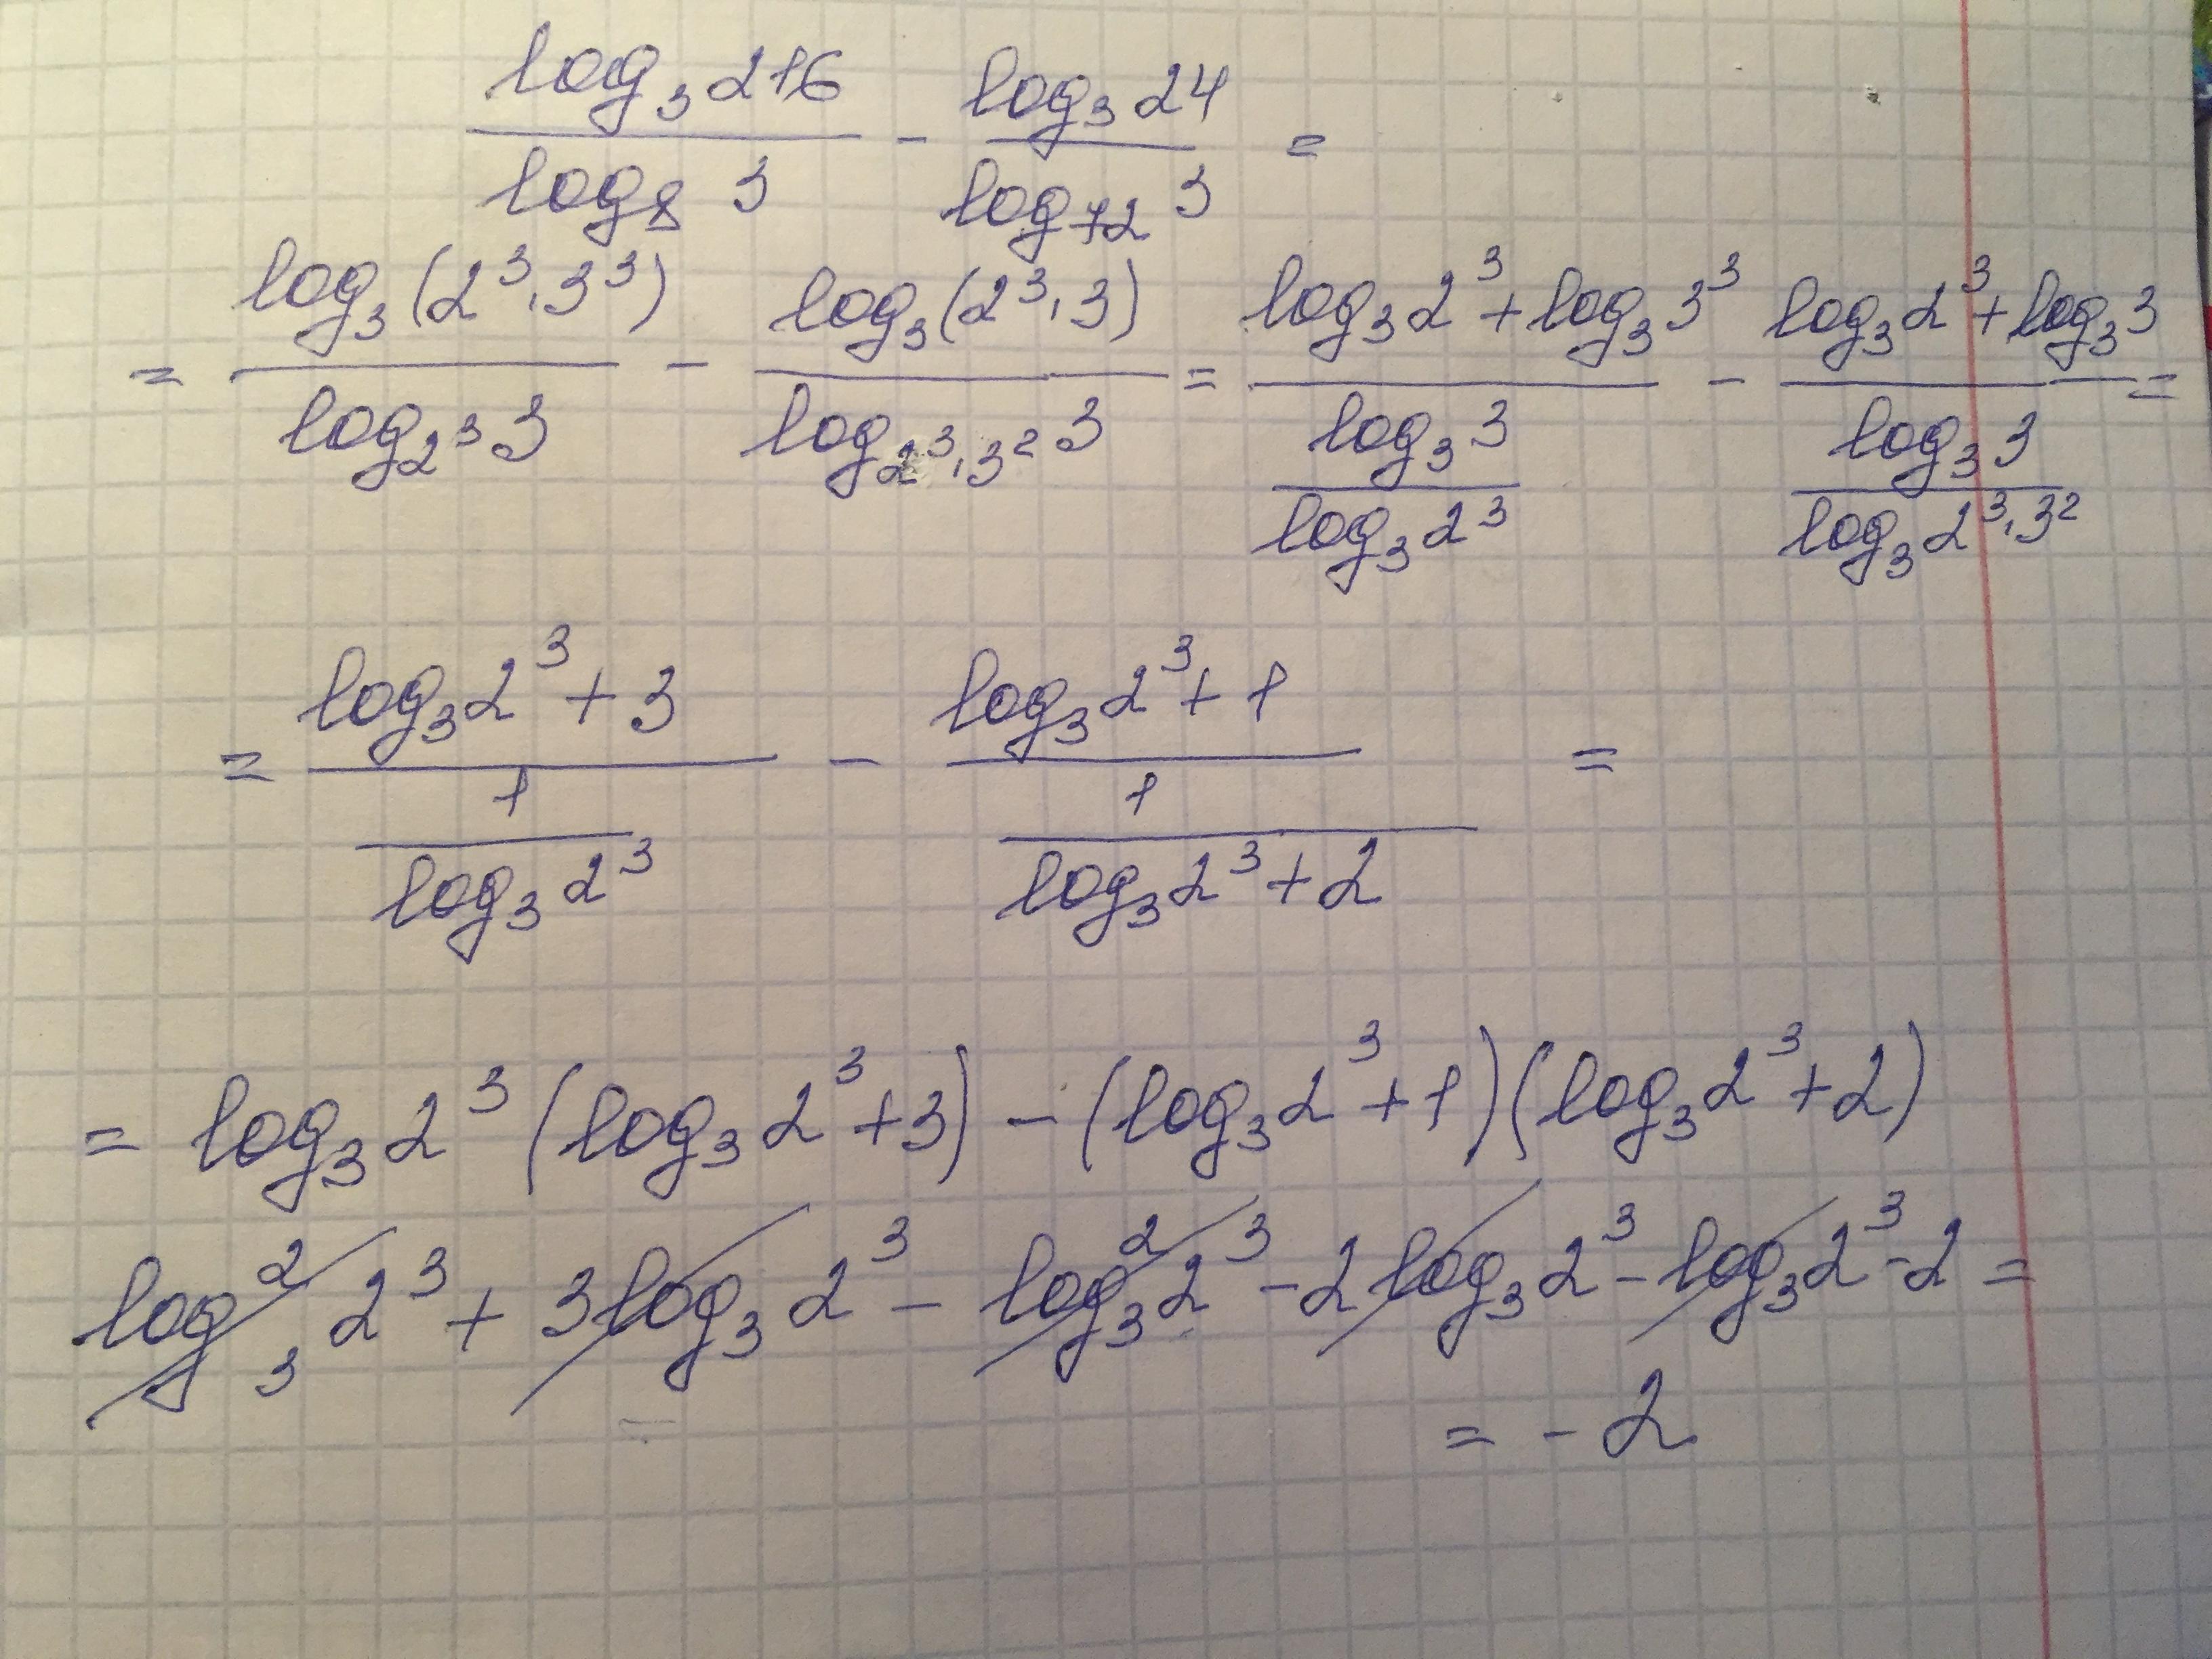 log₃216 / log₈ 3 - log₃24 / log₇₂ 3 =
= log₃(2³·3³) / log₂³ 3 - log₃(2³·3) / log₂³·₃² 3 = (log₃2³ + log₃3³) / (log₃3 / log₃2³) - (log₃2³ + log₃3) / (log₃3 / log₃2³·3²) =
= (log₃2³ + 3) / (1 / log₃2³) - (log₃2³ + 1) / (1 / (log₃2³ + 2)) =
= log₃2³ (log₃2³ + 3) - (log₃2³ + 1)(log₃2³ + 2)
log²₃2³ + 3log₃2³ - log²₃2³ - 2log₃2³ - log₃2³ - 2 =
= - 2